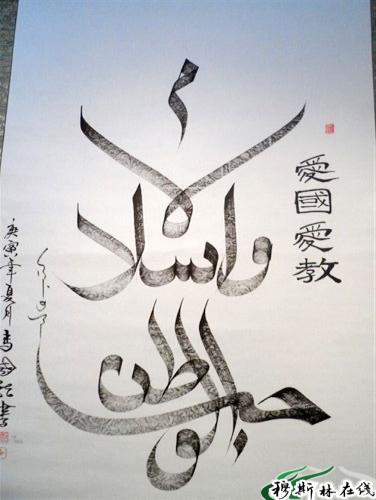 愛國愛教
حب الوطن والاسلام
庚寅年夏月
穆斯林在线